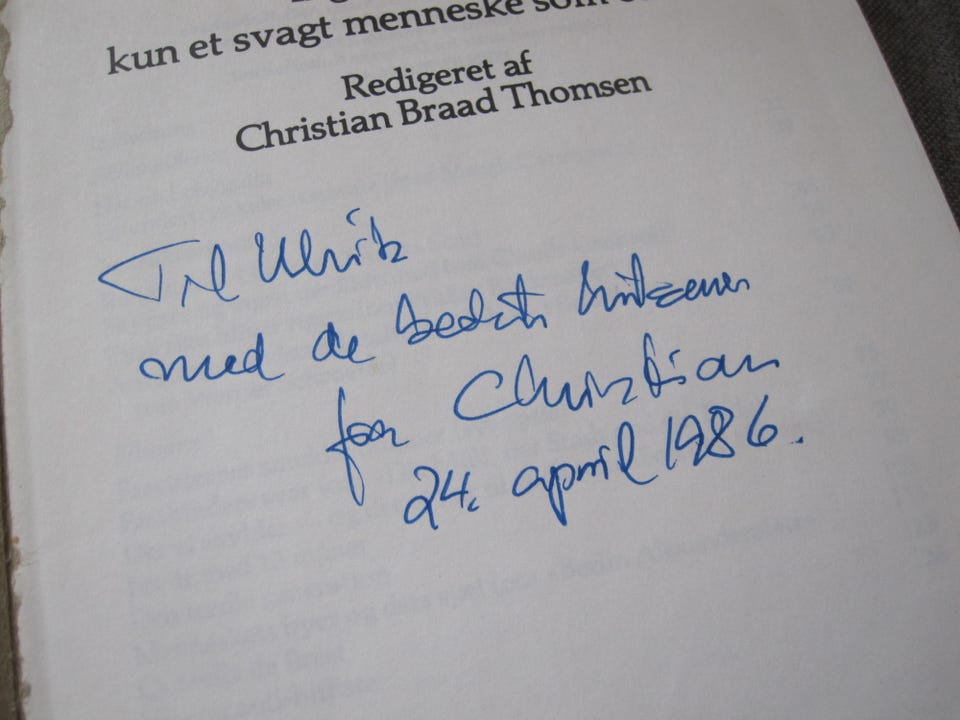 kun et svagt menneske som
Redigeret af
Christian Braad Thomsen
Til Ulrik
med de bedste hilsener
fra Christian
24. april 1986.